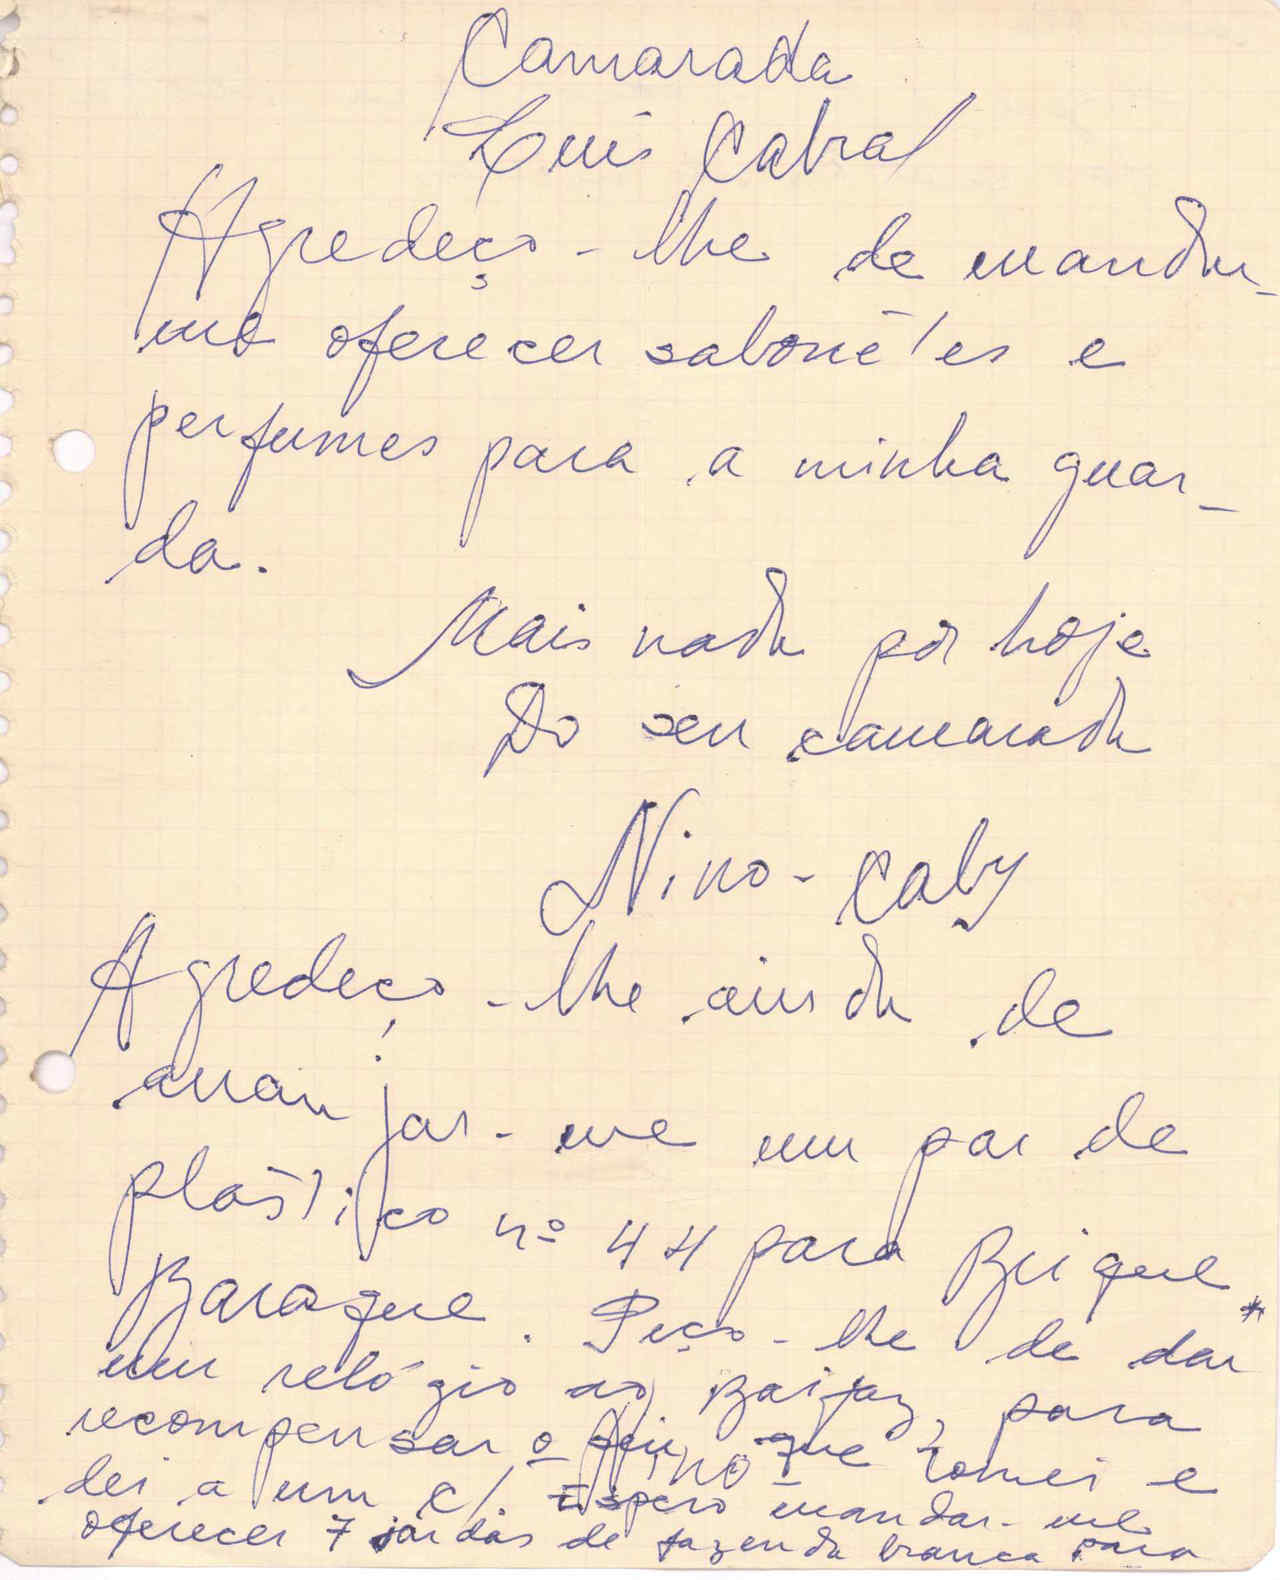 Camarada
Luís Cabral
Agredeço-lhe de mandar-
me oferecer sabonêtes e
perfumes para a minha guar-
da.
Mais nada por hoje
Do seu camarada
Nino-Caby
Agredeço-lhe ainda de
arranjar-me um par de
plástico nº 44 para Brique
Baraque. Peço-lhe de dar *
um relógio ao para
recompensar o seu que tomei e
dei a um c/. Espero mandar-me
Nino
oferecer 7 jardas de fazenda branca para